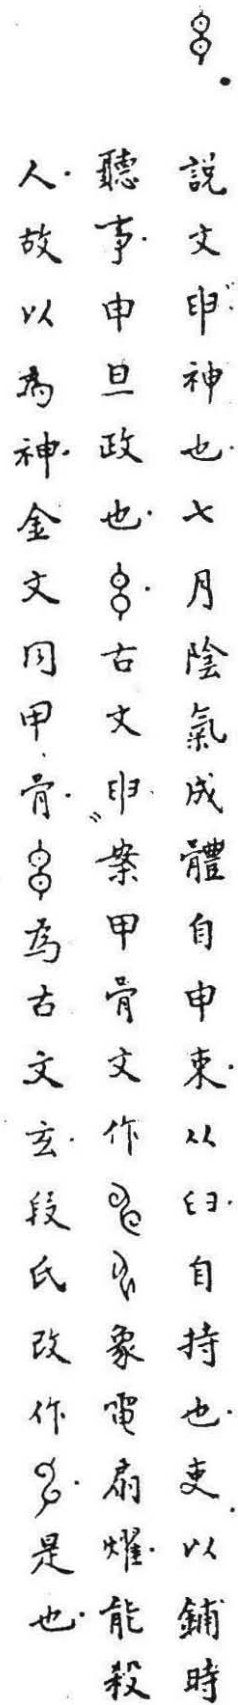 説文𦥔神也七月陰氣成體自申束从𦥑自持也吏以餔時
聽事申旦政也古文𦥔案甲骨文作象電扇燿能殺
人故以為神金文同甲骨為古文玄段氏改作是也